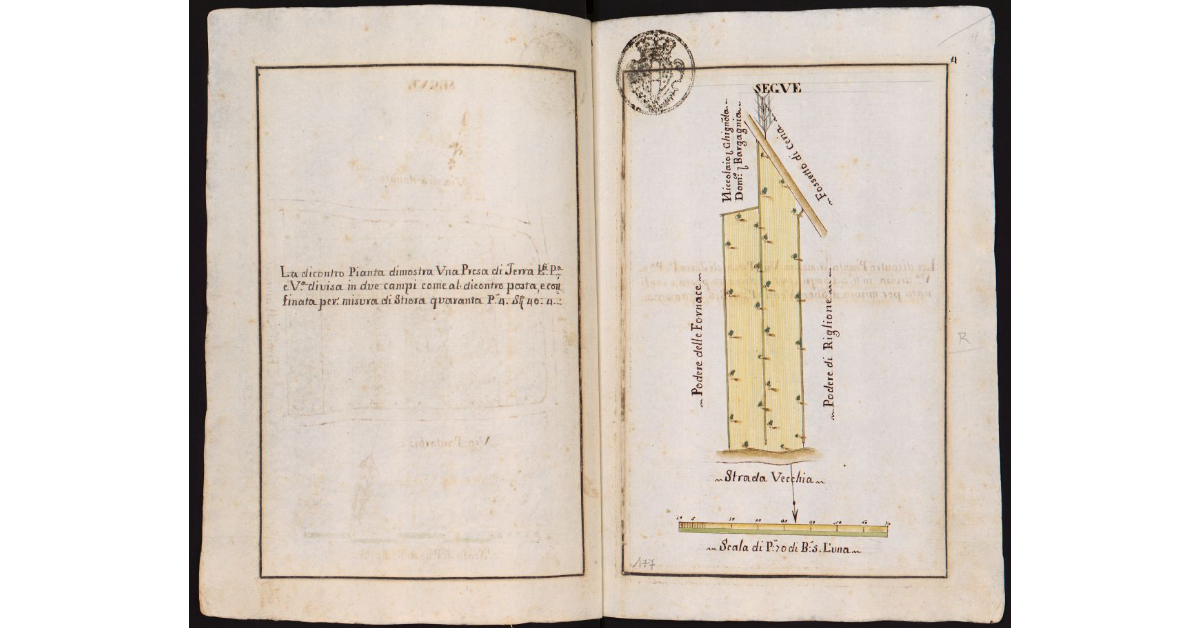 La dicontro Pianta dimostra Vna Presa di Terra L:ª p.ª
e V.ª divisa in due campi come al dicontro posta, e con
finata per misura di Stiora quaranta P.ª 4. Sª 40: 4.
4
SEGVE
Niccolaio Ghignola
Dom.º Bargagnia
Fossetto di Ceria
Podere delle Fornace
Podere di Riglione
Strada Vecchia
Scala di P.ª 70 di B.ª 5. L'una
177
R